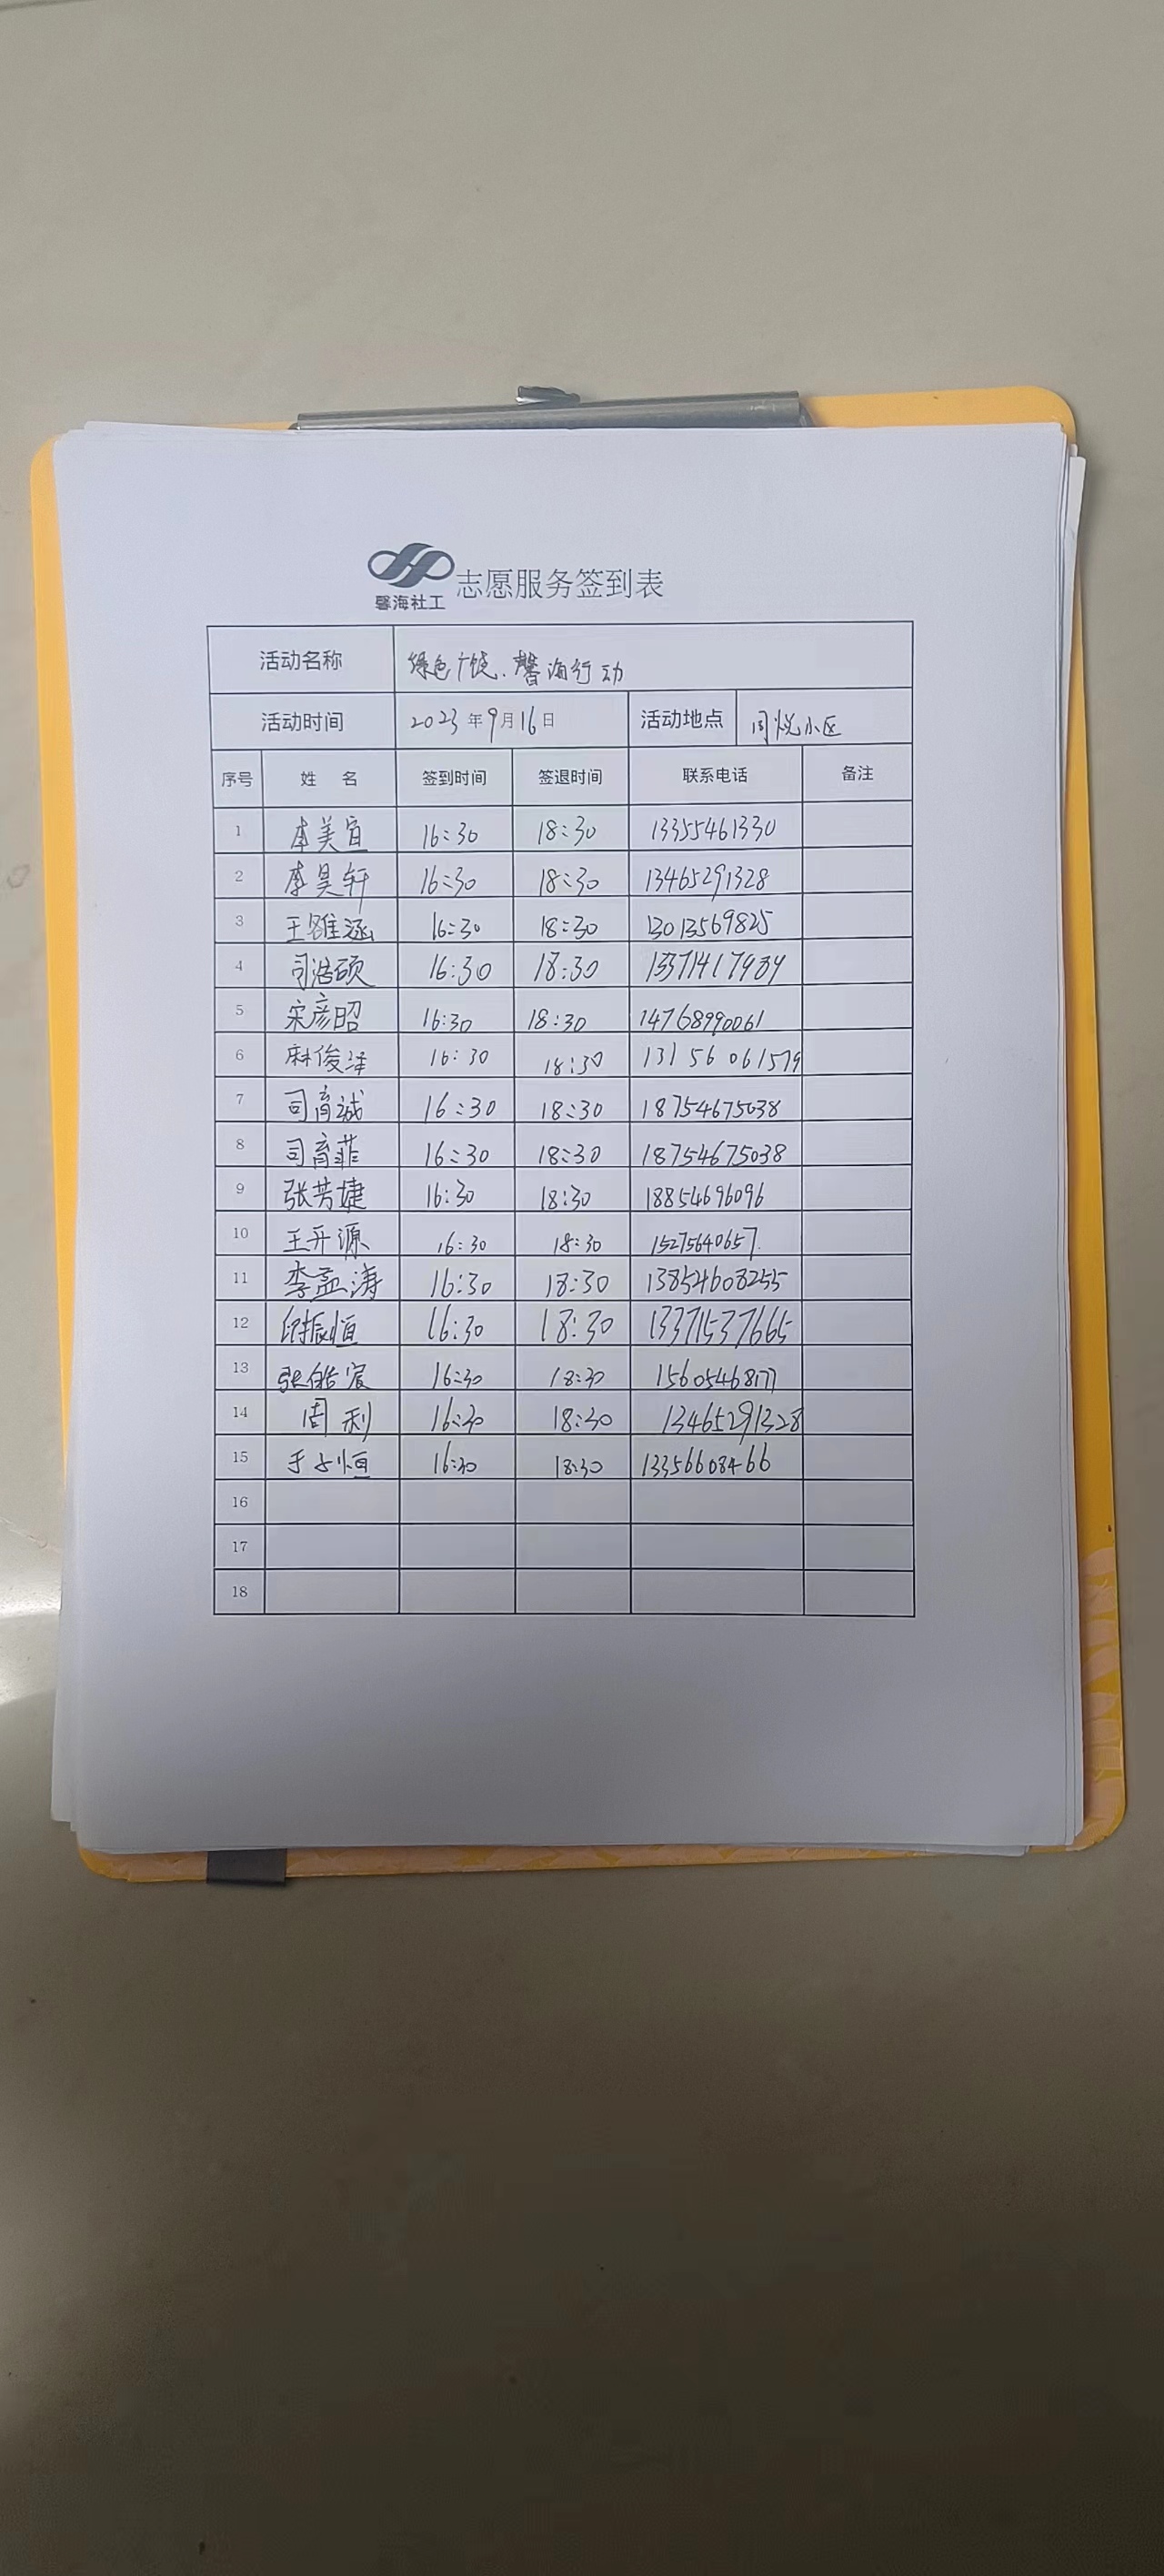 馨海社工 志愿服务签到表
活动名称 绿色广饶.馨海行动
活动时间 2023年9月16日 活动地点 同悦小区
序号 姓 名 签到时间 签退时间 联系电话 备注
1 李美宜 16:30 18:30 13355461330
2 李昊轩 16:30 18:30 13465291328
3 王雅涵 16:30 18:30 13013569825
4 司浩硕 16:30 18:30
5 宋彦昭 16:30 18:30 14768990061
6 麻俊泽 16:30 18:30 13156061579
7 司育诚 16:30 18:30 18754675038
8 司育菲 16:30 18:30 18754675038
9 张芳婕 16:30 18:30 18854696096
10 王开源 16:30 18:30 15275640657.
11 李孟涛 16:30 18:30 13854608255
12 16:30 18:30 13371537665
13 张皓宸 16:30 18:30 15605468177
14 周利 16:30 18:30 13465291328
15 于子恒 16:30 18:30 13356608466
16
17
18